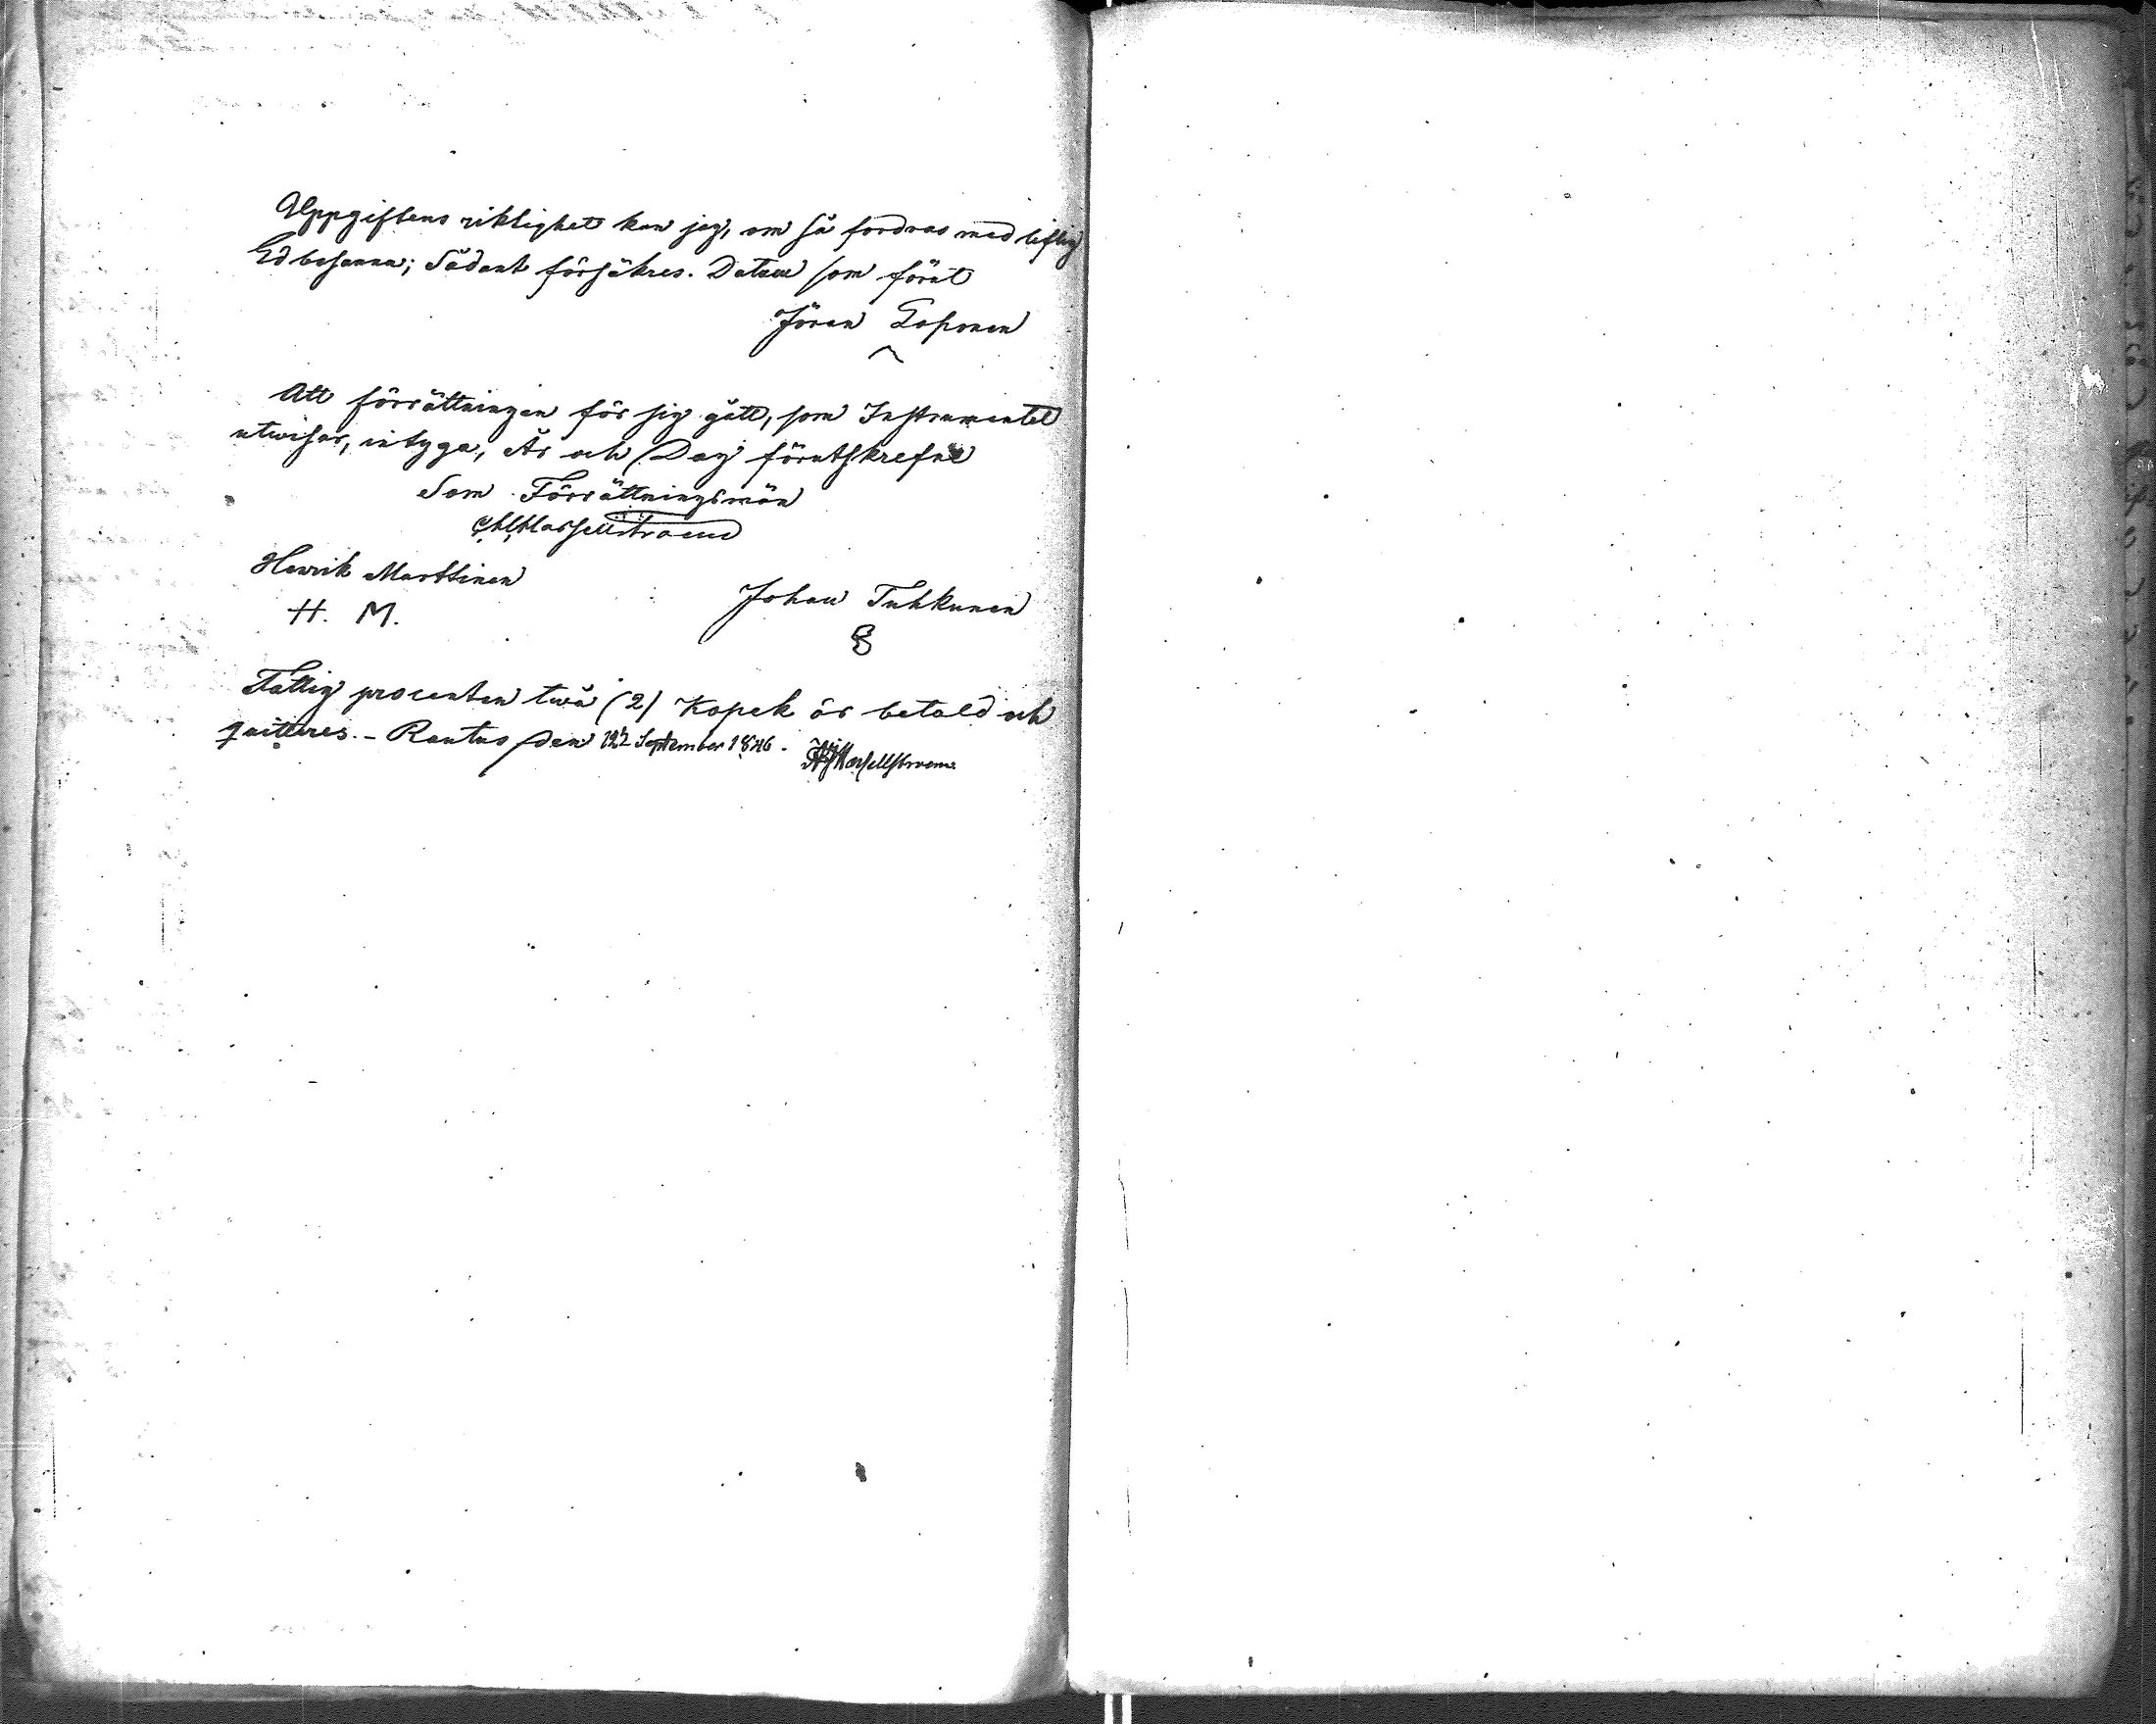 Uppgiftens riktighet kan jag, om så fordras med liflig
Ed besanna; Sådant försäkres. Datum som förut
Jöran Loponen
Att förrättningen för sig gått, som Instrumentet
utwisar, intyga, År och Dag förutskrefne
Som Förrättningsmän
Henrik Marttinen
H. M.
Johan Tuhkunen
Fattig procenten twå (2) Kopek är betald och
quitteres. - Rautus den September 1846.